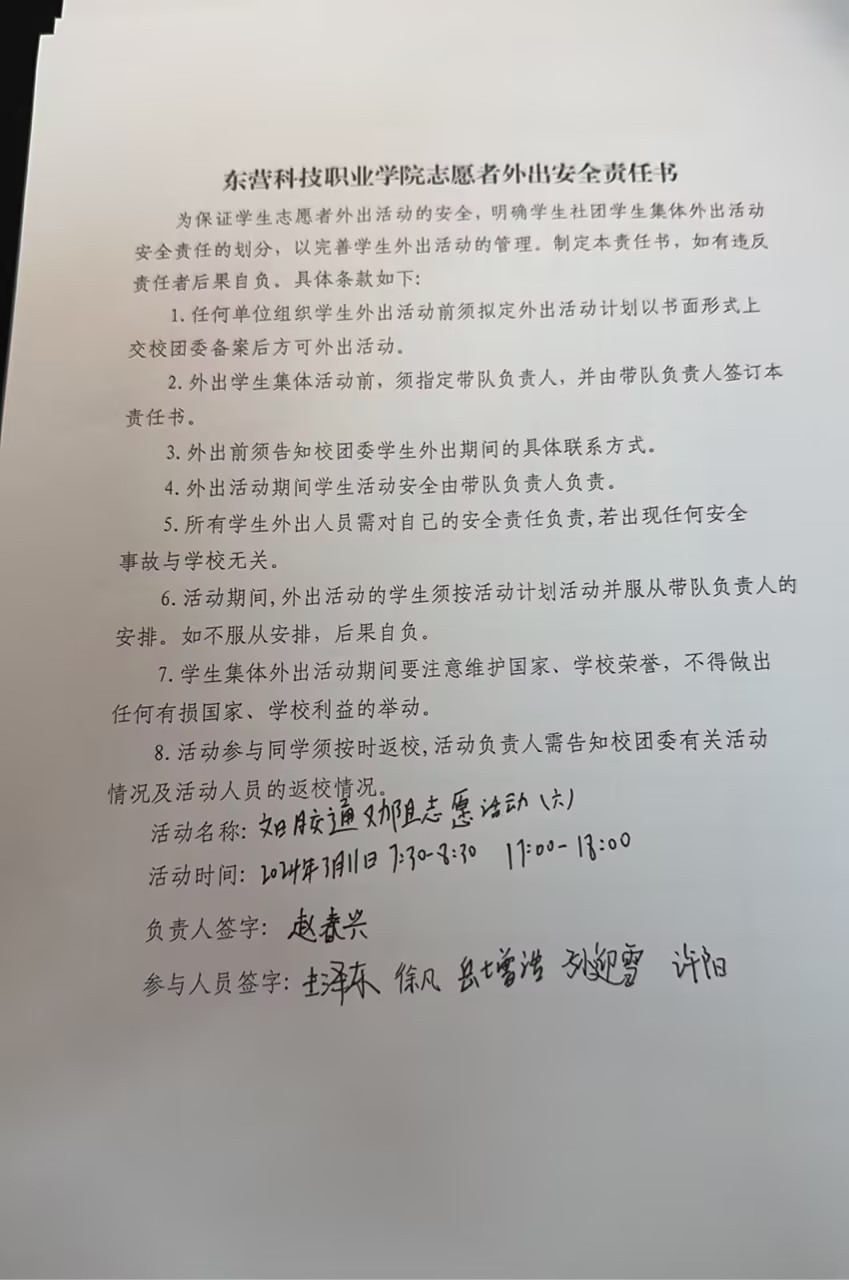 东营科技职业学院志愿者外出安全责任书
为保证学生志愿者外出活动的安全，明确学生社团学生集体外出活动
安全责任的划分，以完善学生外出活动的管理。制定本责任书，如有违反
责任者后果自负。具体条款如下：
1.任何单位组织学生外出活动前须拟定外出活动计划以书面形式上
交校团委备案后方可外出活动。
2.外出学生集体活动前，须指定带队负责人，并由带队负责人签订本
责任书。
3.外出前须告知校团委学生外出期间的具体联系方式。
4.外出活动期间学生活动安全由带队负责人负责。
5.所有学生外出人员需对自己的安全责任负责,若出现任何安全
事故与学校无关。
6.活动期间,外出活动的学生须按活动计划活动并服从带队负责人的
安排。如不服从安排，后果自负。
7.学生集体外出活动期间要注意维护国家、学校荣誉，不得做出
任何有损国家、学校利益的举动。
8.活动参与同学须按时返校,活动负责人需告知校团委有关活动
情况及活动人员的返校情况。
活动名称: 交通劝阻志愿活动（六）
活动时间: 2024年3月11日 7:30-8:30 17:00-18:00
负责人签字: 赵春兴
参与人员签字: 泽东 徐凡 岳增浩 孙迎雪 许阳